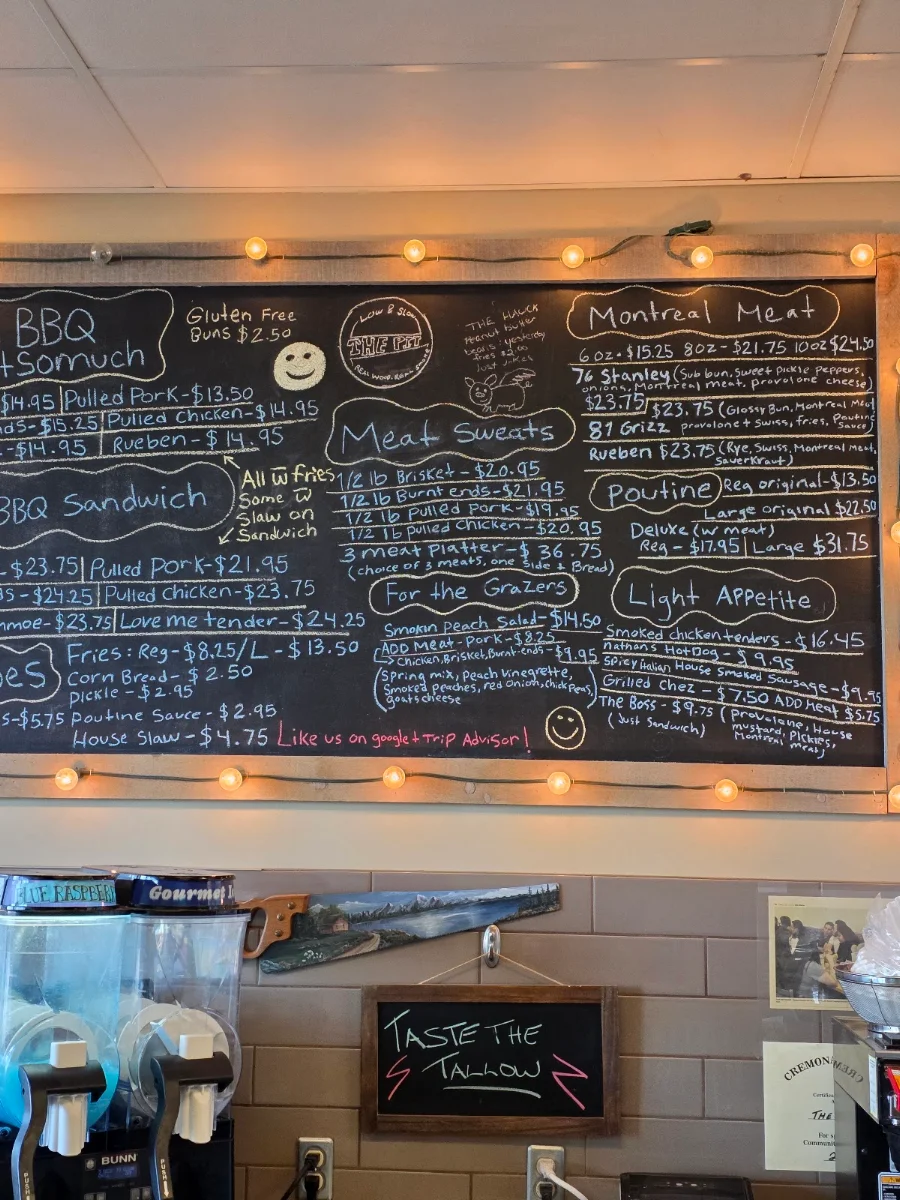 BBQ
Somuch
$14.95 | Pulled Pork-$13.50
$15.25 | Pulled Chicken-$14.95
-$14.95 | Rueben-$14.95
Gluten Free
Buns $2.50
BBQ Sandwich
All w̄ fries
Some w̄
Slaw on
Sandwich
-$23.75 | Pulled Pork-$21.95
-$24.25 | Pulled Chicken-$23.75
-$23.75 | Love me tender-$24.25
Fries: Reg-$8.25/L-$13.50
Corn Bread-$2.50
Pickle-$2.95
-$5.75 Poutine Sauce-$2.95
House Slaw-$4.75
Like us on google + Trip Advisor!
LOW & SLOW
THE PIT
THE HAWK
Peanut butter
fries $2.00
Meat Sweats
1/2 lb Brisket-$20.95
1/2 lb Burnt ends-$21.95
1/2 lb Pulled Pork-$19.95
1/2 lb Pulled Chicken-$20.95
3 meat Platter-$36.75
(choice of 3 meats, one Side + Bread)
For the Grazers
Smokin Peach Salad-$14.50
ADD Meat-Pork-$8.25
Chicken, Brisket, Burnt-ends-$9.95
(Spring mix, Peach vinegrette,
Smoked Peaches, red onion, chick peas,
goats cheese
Montreal Meat
6oz-$15.25 8oz-$21.75 10oz $24.50
76 Stanley (Sub bun, Sweet pickle Peppers,
onions, Montreal meat, provolone cheese)
$23.75
$23.75 (Glossy Bun, Montreal Meat
87 Grizz provolone + Swiss, fries, Poutine
Sauce)
Rueben $23.75 (Rye, Swiss, Montreal Meat,
Saverkraut)
Poutine Reg original-$13.50
Large original $22.50
Deluxe (w meat)
Reg-$17.95 | Large $31.75
Light Appetite
Smoked chicken tenders-$16.45
nathan's Hot Dog-$9.95
Spicy Italian House Smoked Sausage-$9.95
Grilled Chez-$7.50 ADD Meat $5.75
The Boss-$9.75 (Provolone, House
(Just Sandwich)
mustard, Pickles,
Montreal meat)
Gourmet
TASTE THE
TALLOW
BUNN
PUSH
PUSH
CREMONA
THE